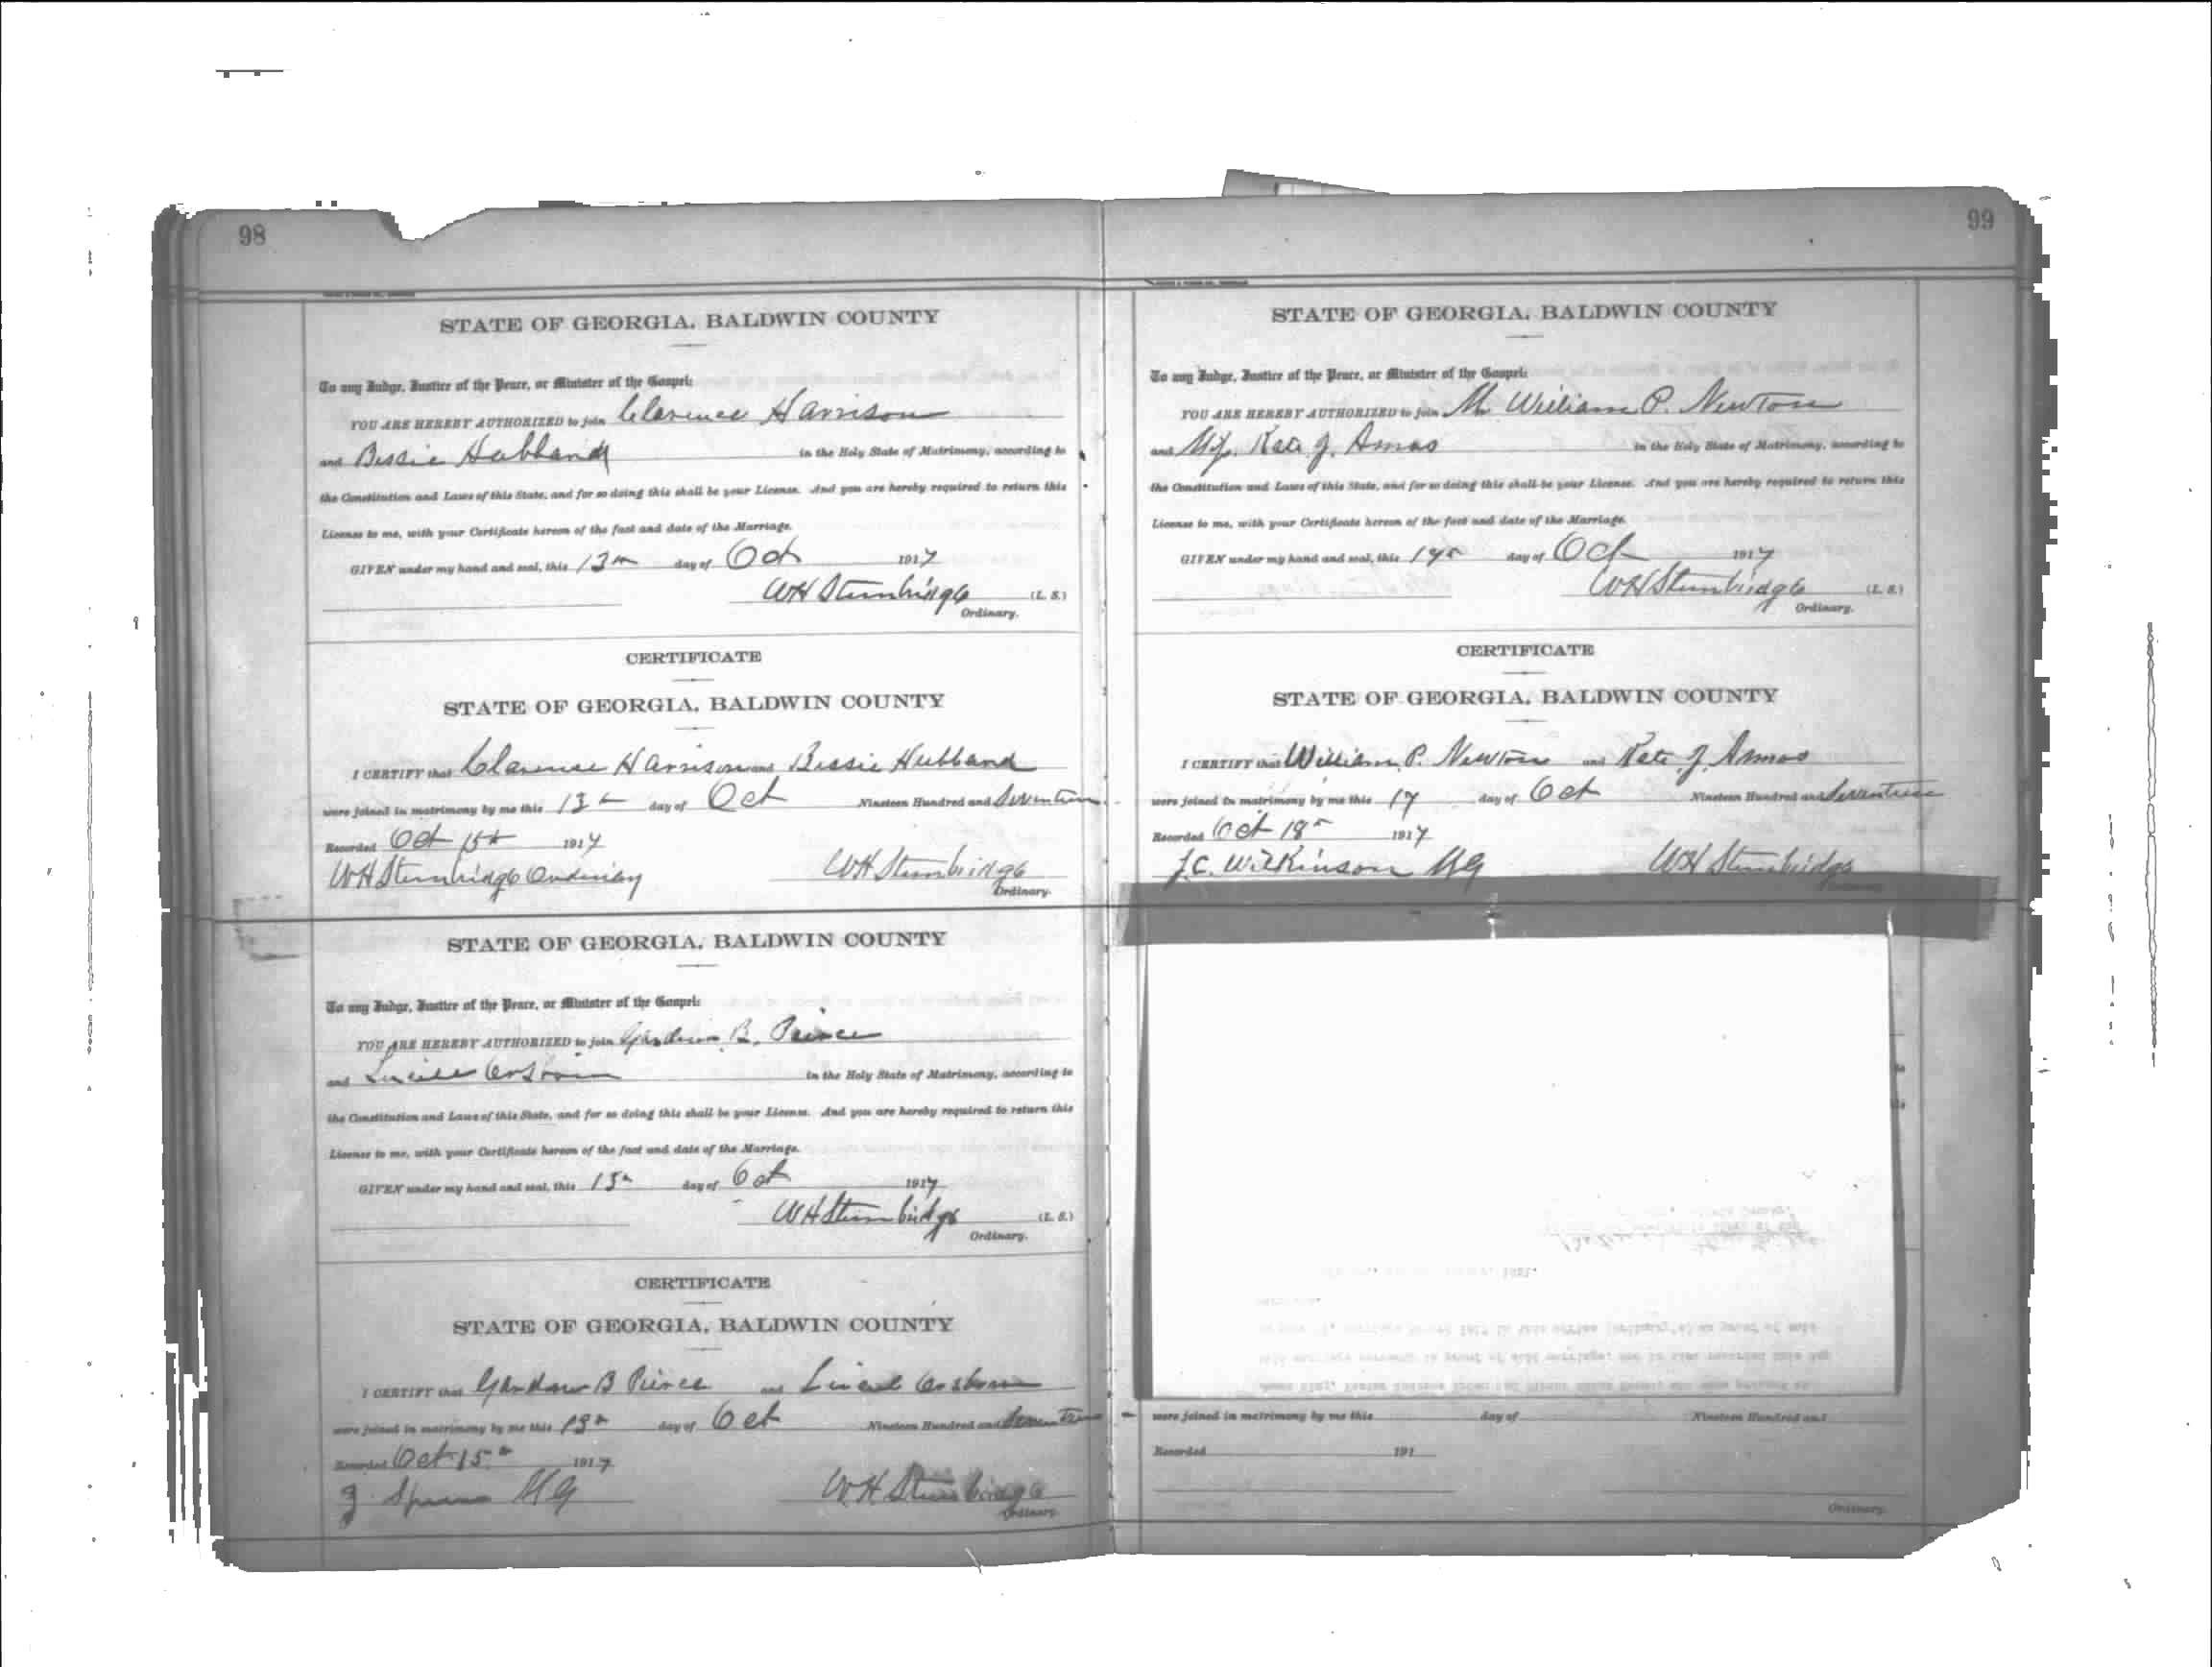 98
STATE OF GEORGIA, BALDWIN COUNTY
To any Judge, Justice of the Peace, or Minister of the Gospel:
YOU ARE HEREBY AUTHORIZED to join Clarence Harrison
and Bessie Hubbard in the Holy State of Matrimony, according to
the Constitution and Laws of this State, and for so doing this shall be your License. And you are hereby required to return this
License to me, with your Certificate hereon of the fact and date of the Marriage.
GIVEN under my hand and seal, this 13th day of Oct 1917
WH Stembridge (L. S.)
Ordinary.
CERTIFICATE
STATE OF GEORGIA, BALDWIN COUNTY
I CERTIFY that Clarence Harrison and Bessie Hubbard
were joined in matrimony by me this 13th day of Oct Nineteen Hundred and Seventeen
Recorded Oct 15th 1917
WH Stembridge Ordinary WH Stembridge
Ordinary.
STATE OF GEORGIA, BALDWIN COUNTY
To any Judge, Justice of the Peace, or Minister of the Gospel:
YOU ARE HEREBY AUTHORIZED to join B. Peirce
and Lucile in the Holy State of Matrimony, according to
the Constitution and Laws of this State, and for so doing this shall be your License. And you are hereby required to return this
License to me, with your Certificate hereon of the fact and date of the Marriage.
GIVEN under my hand and seal, this day of Oct 1917
WH Stembridge (L. S.)
Ordinary.
CERTIFICATE
STATE OF GEORGIA, BALDWIN COUNTY
I CERTIFY that B Peirce and
were joined in matrimony by me this 13th day of Oct Nineteen Hundred and Seventeen
Recorded Oct 15th 1917
MG WH Stembridge
Ordinary.
99
STATE OF GEORGIA, BALDWIN COUNTY
To any Judge, Justice of the Peace, or Minister of the Gospel:
YOU ARE HEREBY AUTHORIZED to join Mr William P. Newton
and Kate J. Amos in the Holy State of Matrimony, according to
the Constitution and Laws of this State, and for so doing this shall be your License. And you are hereby required to return this
License to me, with your Certificate hereon of the fact and date of the Marriage.
GIVEN under my hand and seal, this 17th day of Oct 1917
WH Stembridge (L. S.)
Ordinary.
CERTIFICATE
STATE OF GEORGIA, BALDWIN COUNTY
I CERTIFY that William P. Newton and Kate J. Amos
were joined in matrimony by me this 17 day of Oct Nineteen Hundred and Seventeen
Recorded Oct 18th 1917
J.C. Wilkinson MG WH Stembridge
were joined in matrimony by me this day of Nineteen Hundred and
Recorded 191
Ordinary.